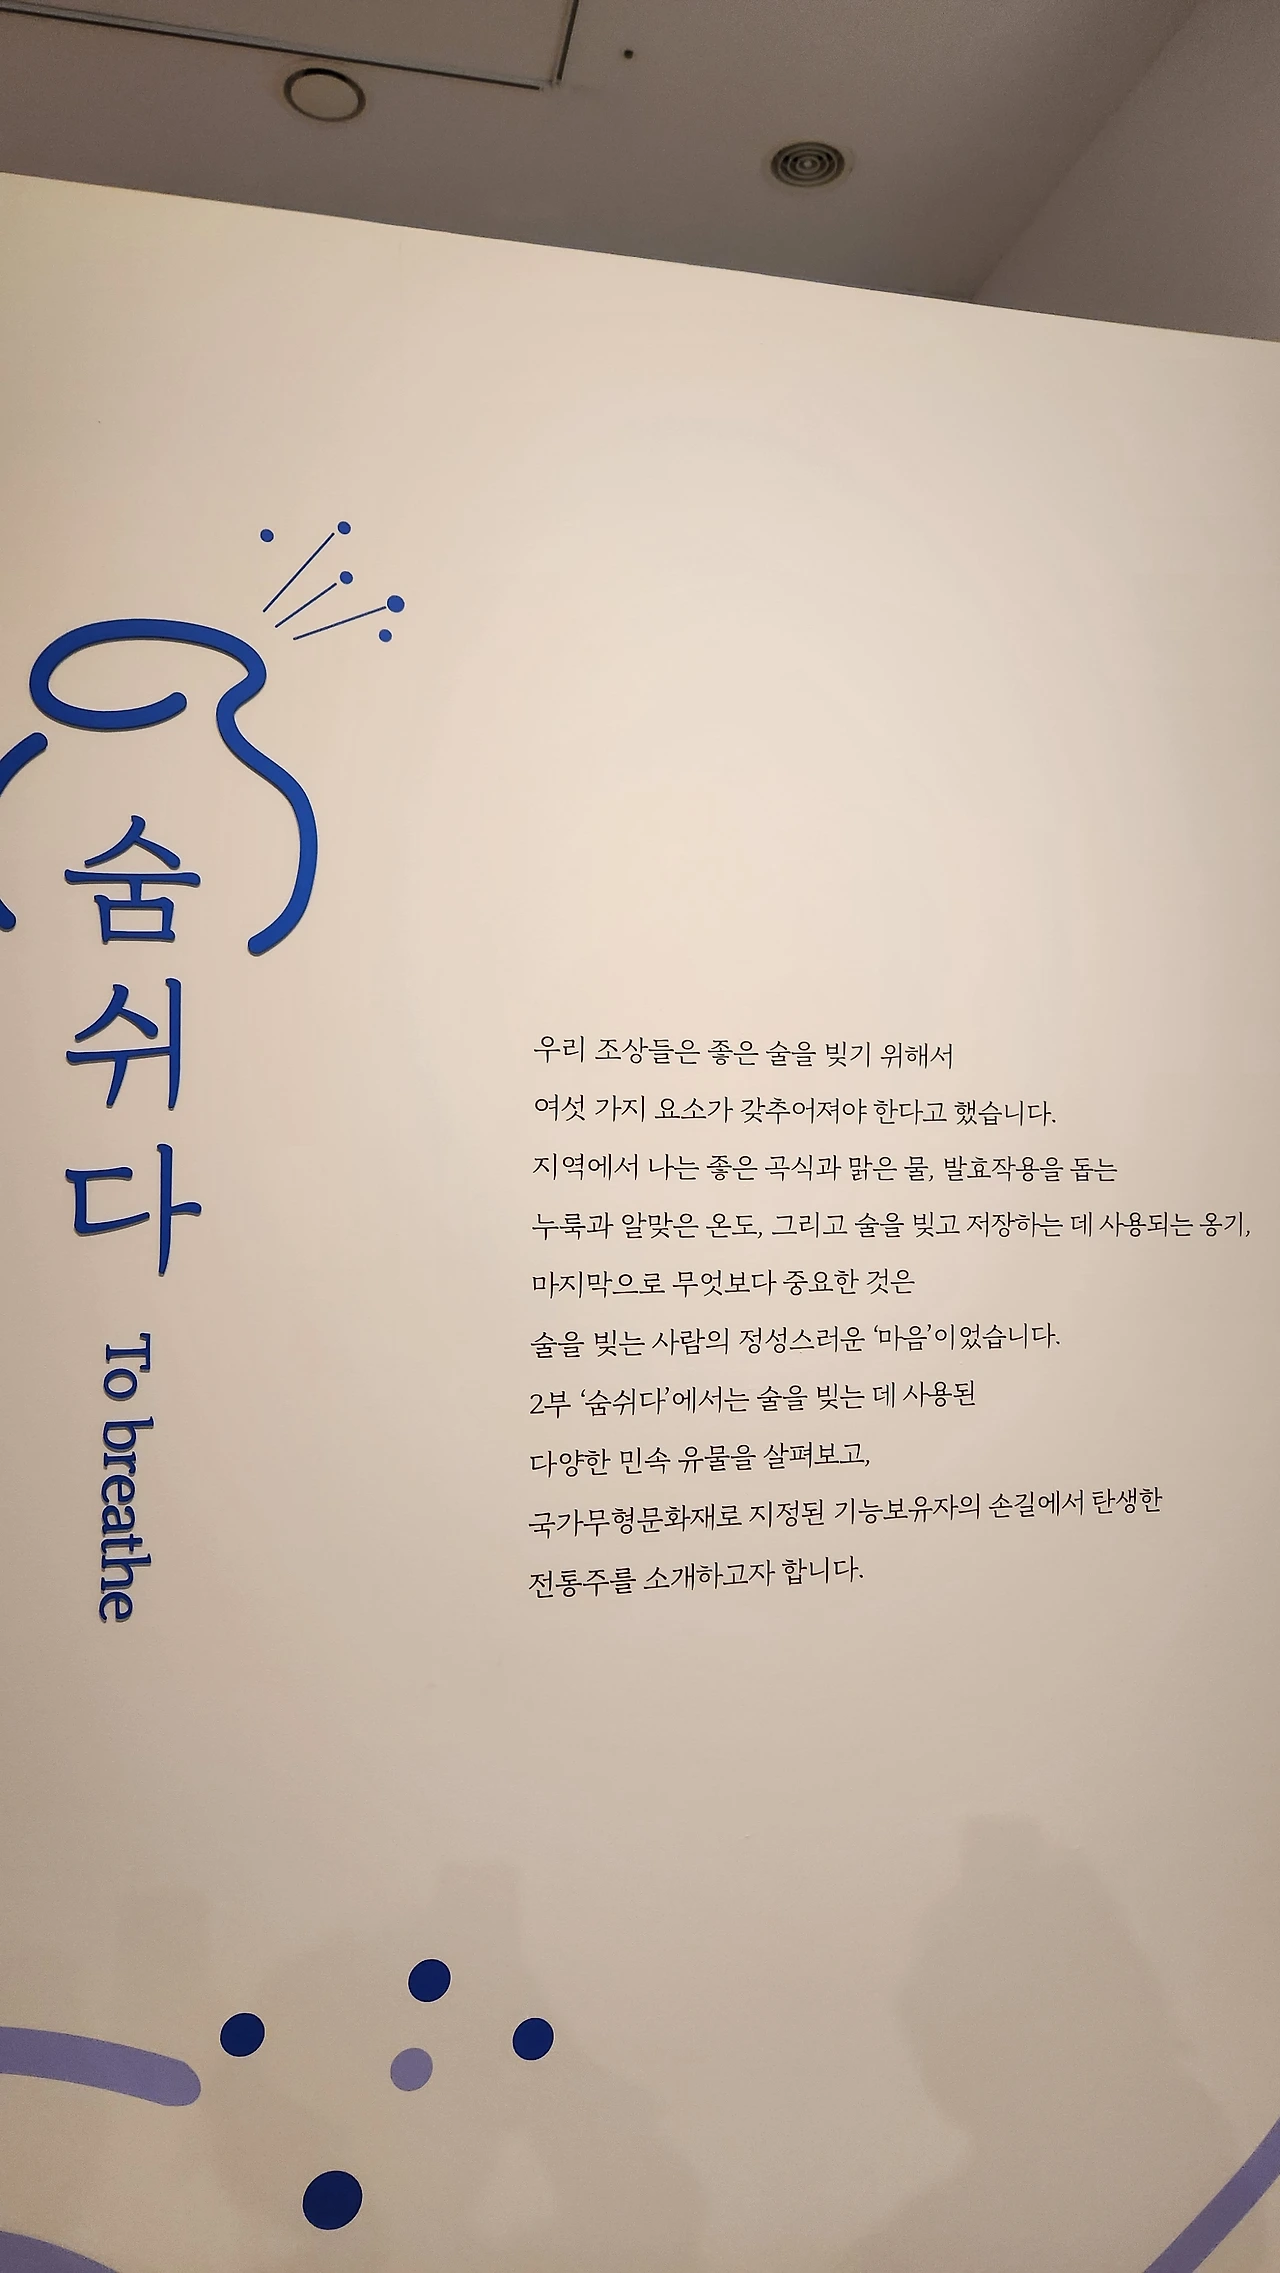 숨쉬다
To breathe
우리 조상들은 좋은 술을 빚기 위해서
여섯 가지 요소가 갖추어져야 한다고 했습니다.
지역에서 나는 좋은 곡식과 맑은 물, 발효작용을 돕는
누룩과 알맞은 온도, 그리고 술을 빚고 저장하는 데 사용되는 옹기,
마지막으로 무엇보다 중요한 것은
술을 빚는 사람의 정성스러운 ‘마음’이었습니다.
2부 ‘숨쉬다’에서는 술을 빚는 데 사용된
다양한 민속 유물을 살펴보고,
국가무형문화재로 지정된 기능보유자의 손길에서 탄생한
전통주를 소개하고자 합니다.